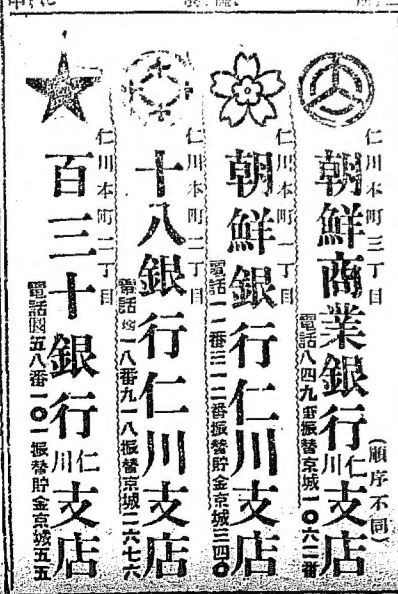 (順序不同)
仁川本町三丁目
朝鮮商業銀行仁川支店
電話八四九番振替京城一〇六二番
仁川本町一丁目
朝鮮銀行仁川支店
電話一一番三一二番振替貯金京城三四〇
仁川本町二丁目
十八銀行仁川支店
電話 一八番九一八振替京城二六七六
仁川本町二丁目
百三十銀行仁川支店
電話 五八番一〇一振替貯金京城五五